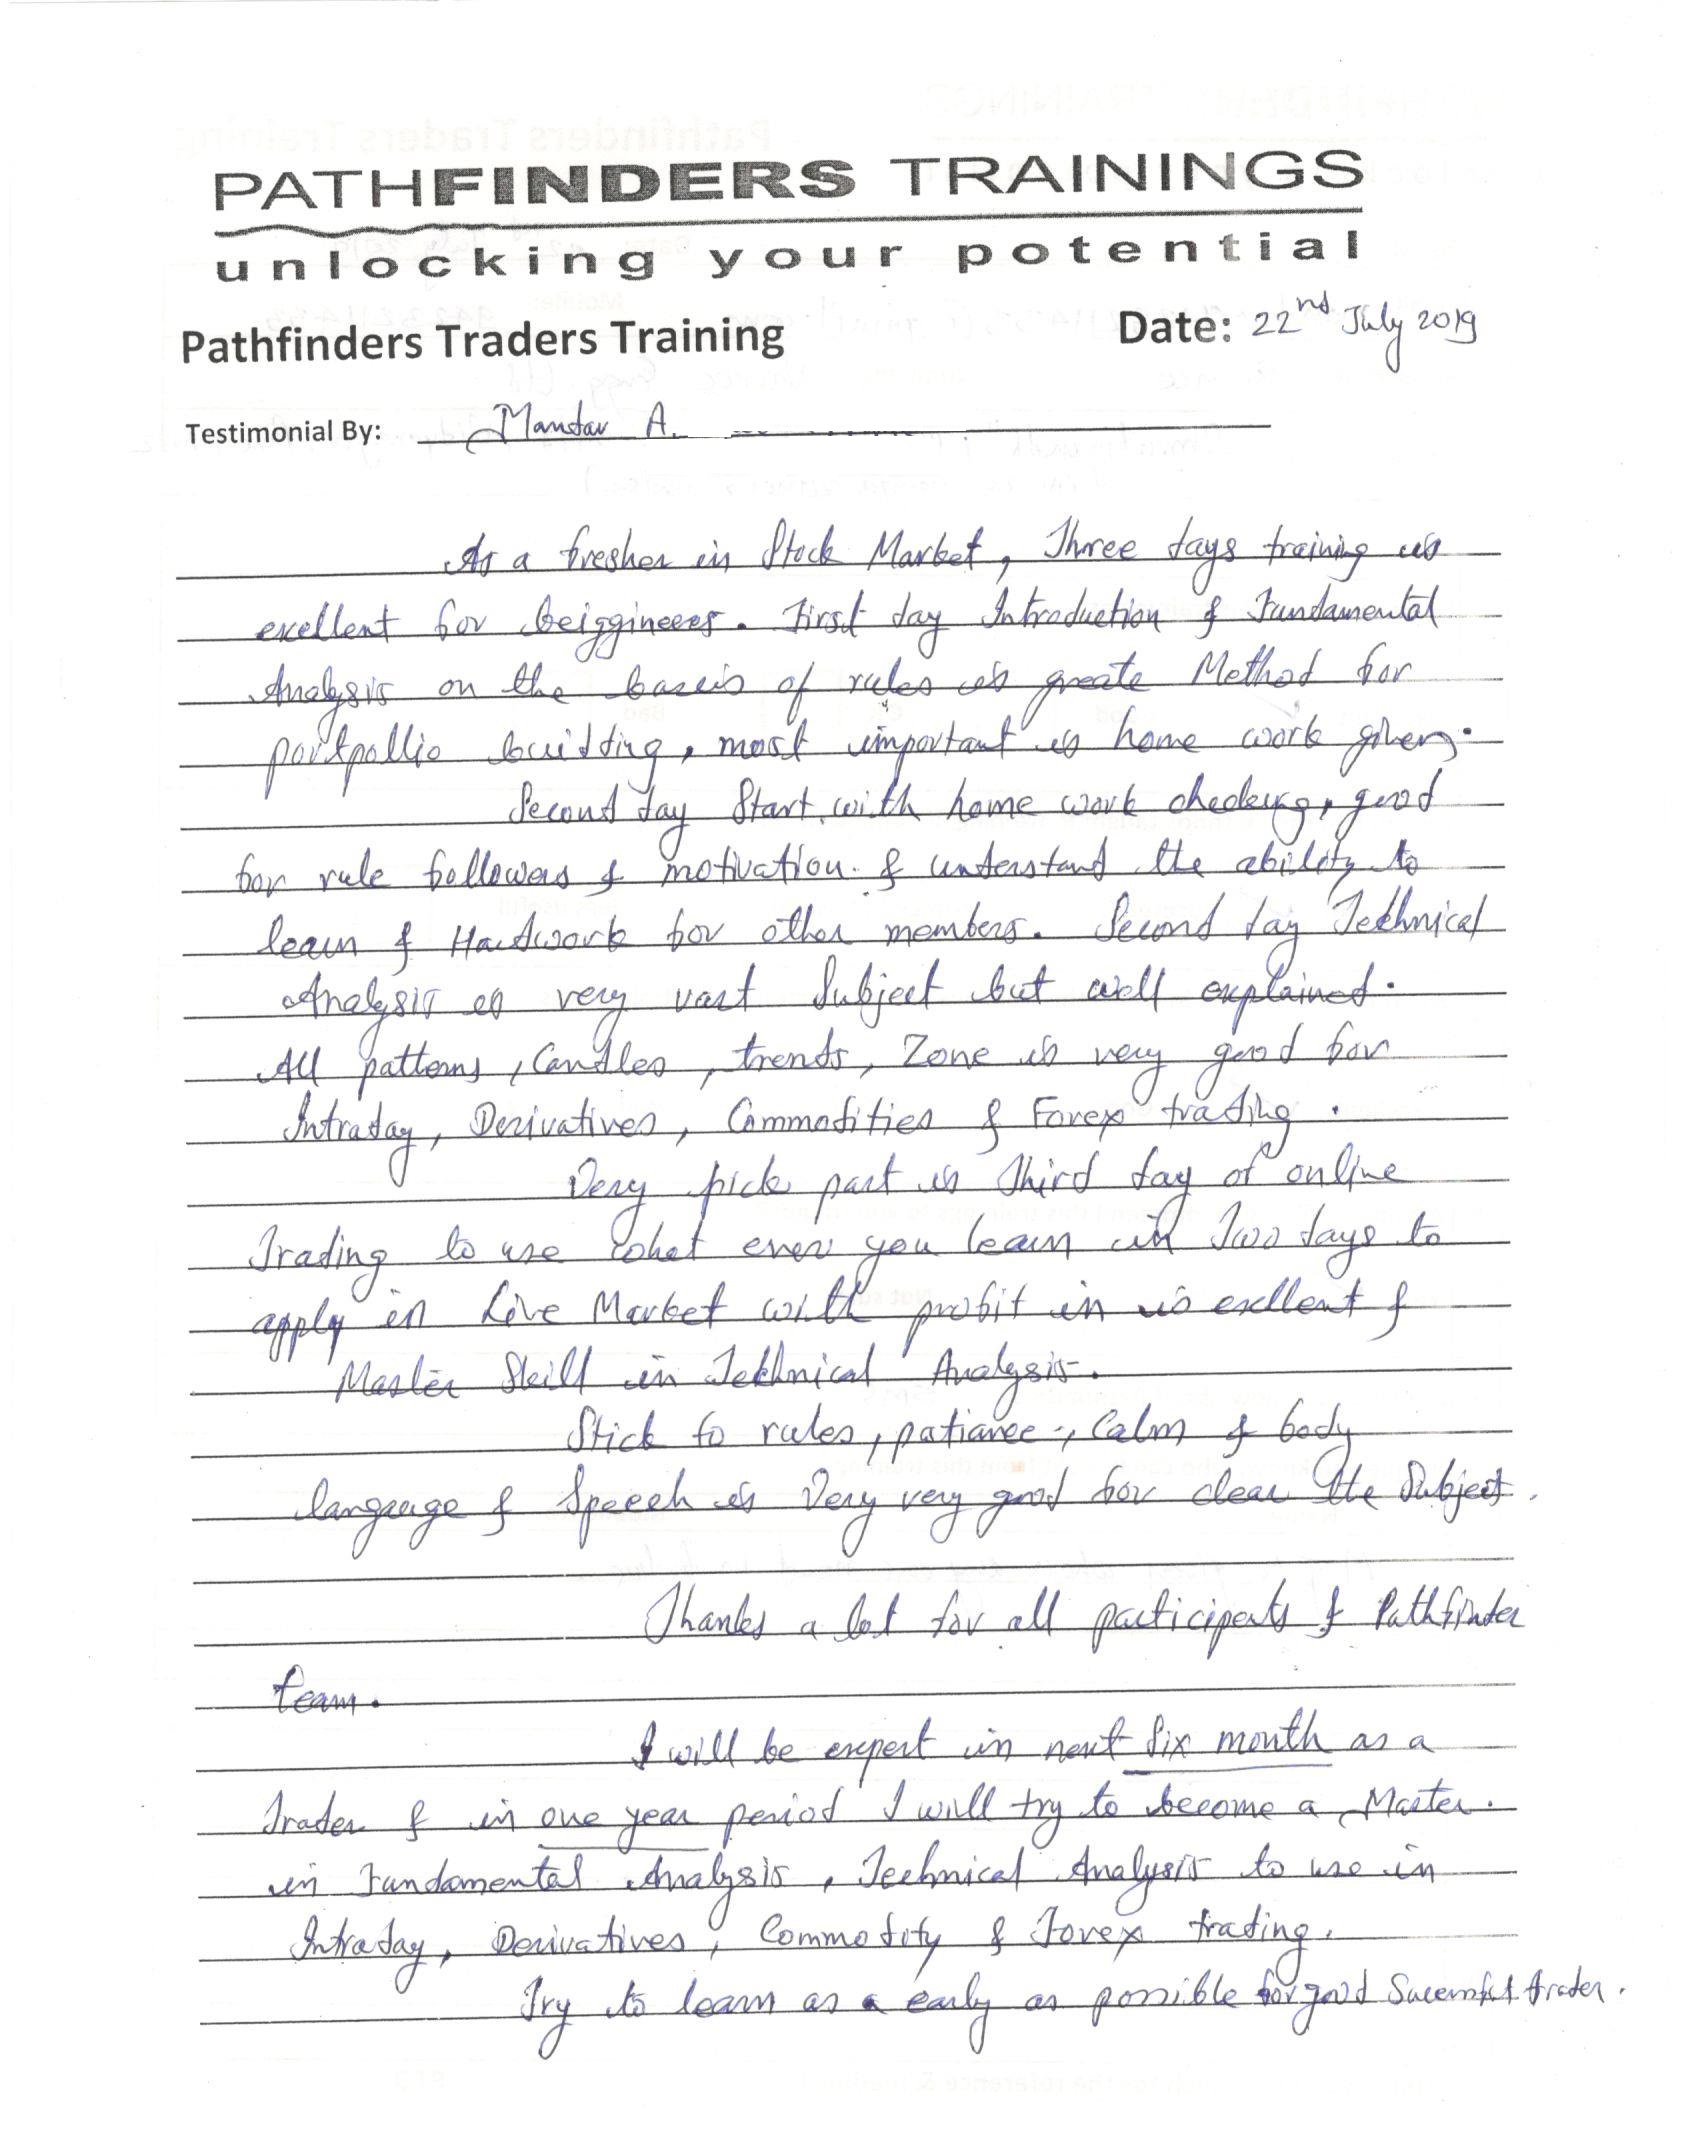 PATHFINDERS TRAININGS
unlocking your potential
Pathfinders Traders Training Date: 22nd July 2019
Testimonial By: Mandar A.
As a fresher in Stock Market, Three days training is
exellent for beiggineers. First day Introduction & Fundamental
Analysis on the baseis of rules is greate Method for
portpollio building, most important is home work given.
Second day Start with home work checking, good
for rule followers & motivation. & understand the ability to
learn & Hardwork for other members. Second day Tekhnical
Analysis is very vast Subject but well explained.
All patterns, Candles, trends, Zone is very good for
Intraday, Derivatives, Commodities & Forex trading.
Very pick part is Third day of online
Trading to use what ever you learn in Two days to
apply in Live Market with profit in is exellent &
Master Skill in Tekhnical Analysis.
Stick to rules, patiance, Calm & body
langauge & Speech is Very very good for clear the Subject.
Thanks a lot for all participents & Pathfinder
team.
I will be expert in next Six month as a
Trader & in one year period I will try to become a Master.
in Fundamental Analysis, Technical Analysis to use in
Intraday, Derivatives, Commodity & Forex trading.
Try to learn as a early as possible for good Sucessful trader.